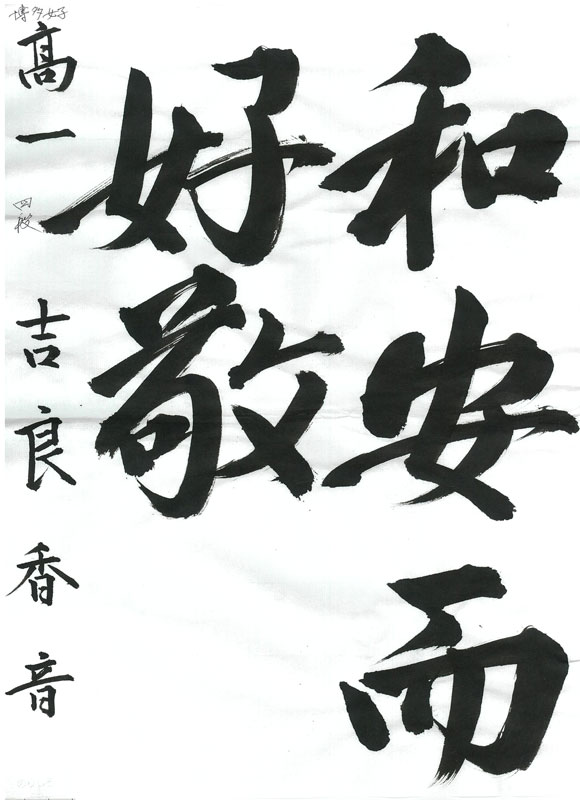 和安而
好敬
高一 四段 吉良香音
博多女子